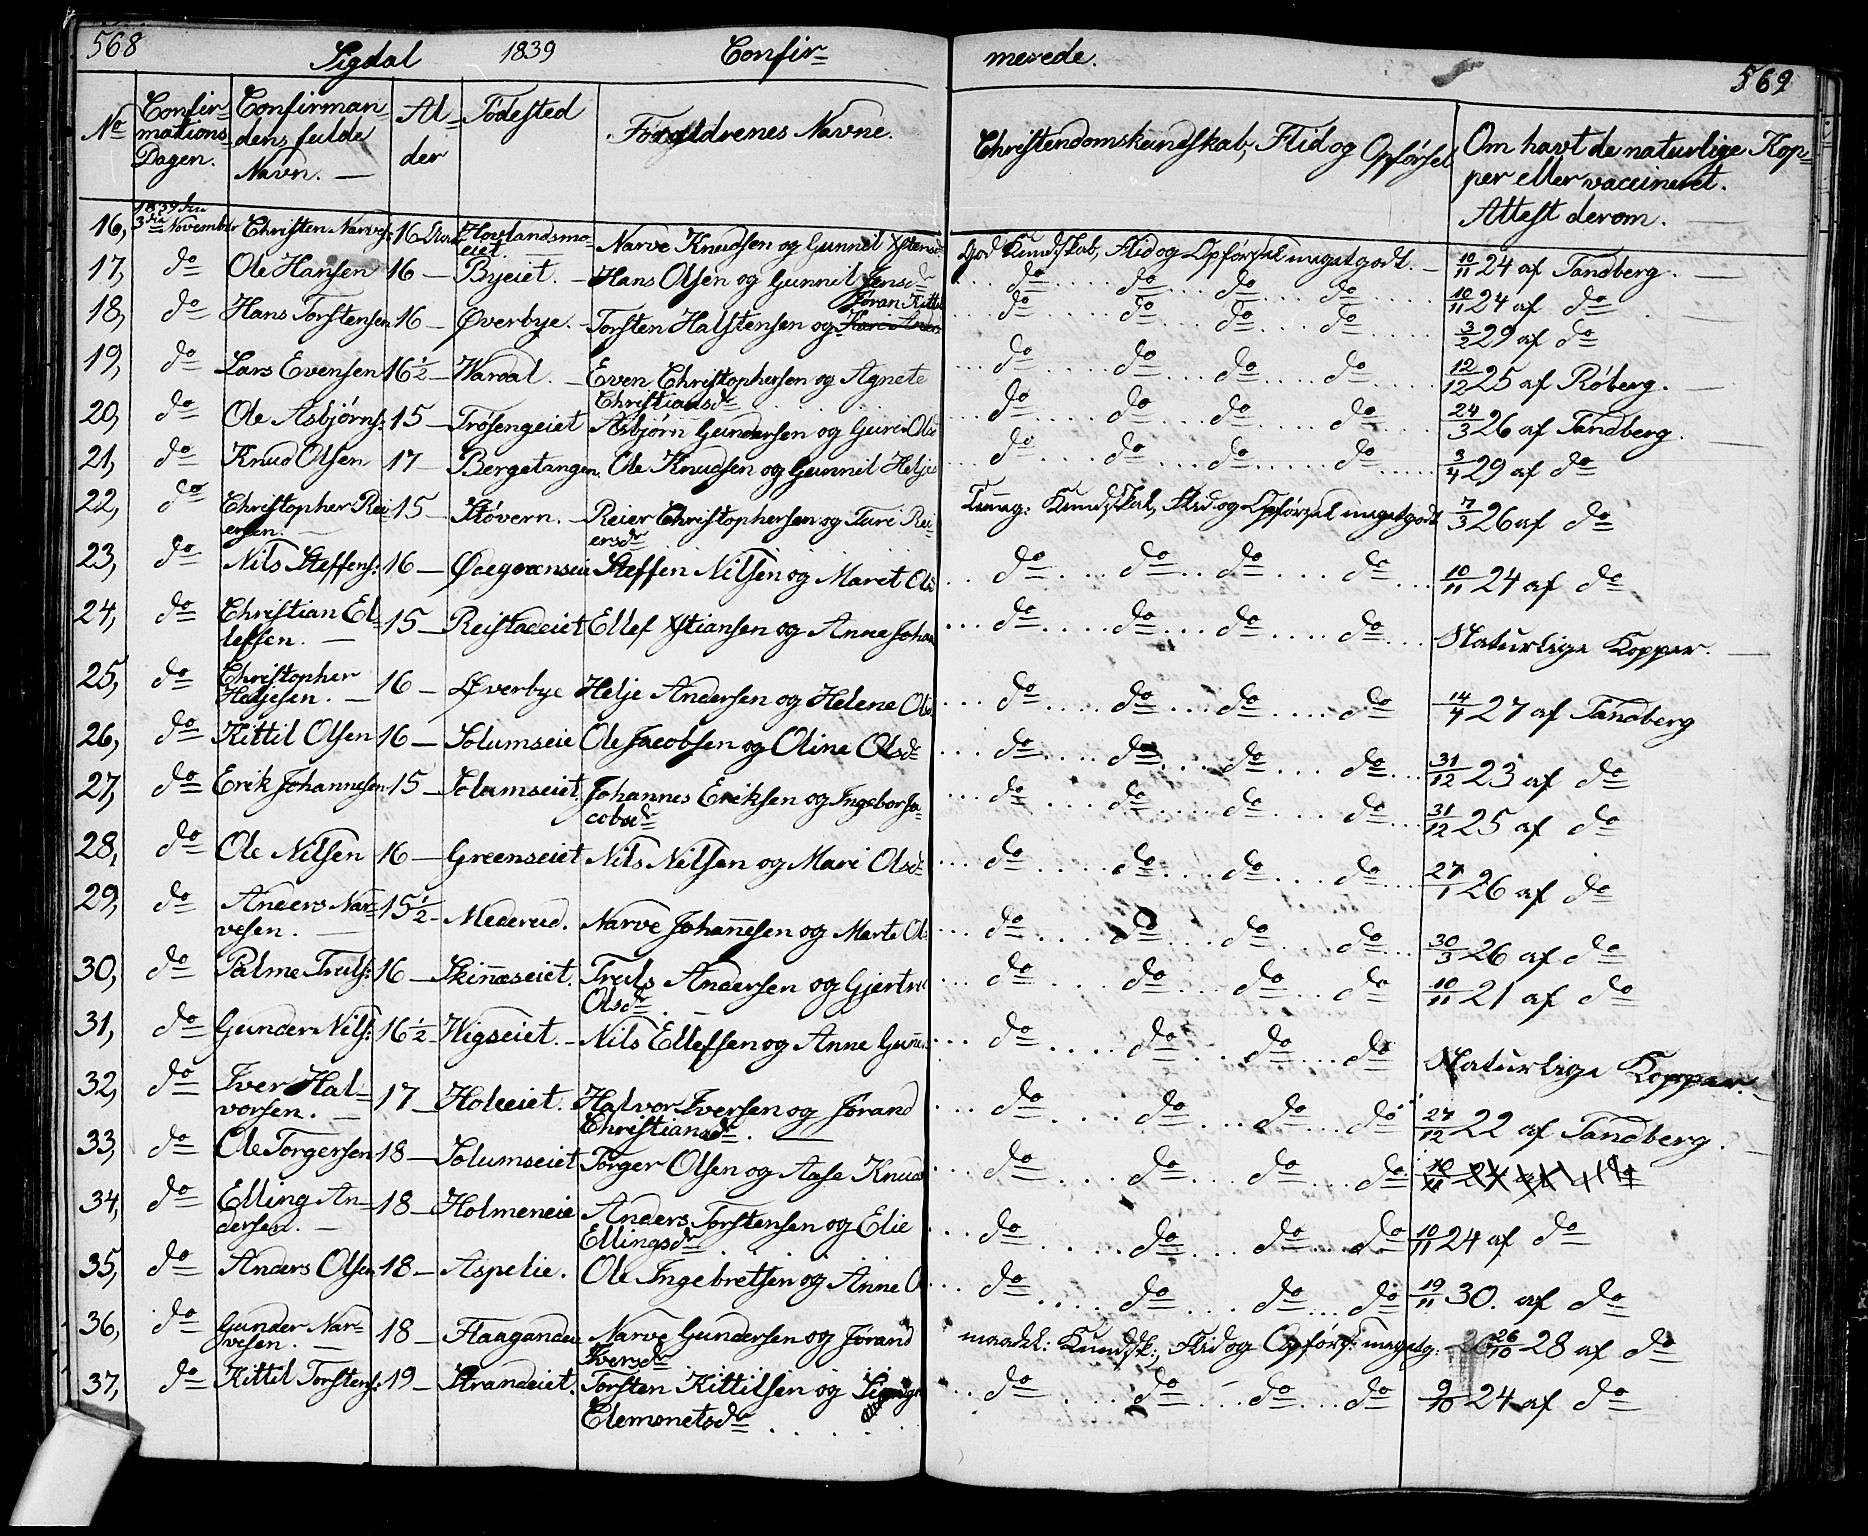 568 Sigdal 1839 Confir= merede. 569
No Confir= mations Dagen. Confirman= dens fulde Navn. — Al= der Fødested Forældrenes Navne. Christendomskundskab, Flid og Opførsel Om havt de naturlige Kop= per eller vaccineret. Attest derom. —
16, 1839 den 3die November Christen Narves: 16 Hovlandsmo= eiet. Narve Knudsen og Gunnil Xstensd God Kundskab, Flid og Opførsel meget godt. — 10/11 24 af Tandberg. —
17, do Ole Hansen 16 — Byeiet. — Hans Olsen og Gunnil Jensd ... do ... do ... do ... do ... 10/11 24 af do —
18, do Hans Torstensen 16 — Øverbye. — Torsten Halstensen og Jøran Kittil ... do ... do ... do ... do ... 3/2 29 af do
19, do Lars Evensen 16½ — Waraal. — Even Christophersen og Agnete Christiansdr ... do ... do ... do ... do ... 12/12 25 af Røberg. —
20, do Ole Asbjørns: 15 — Trosengeiet Asbjørn Gundersen og Guri Ols ... do ... do ... do ... do ... 24/3 26 af Tandberg. —
21, do Knud Olsen 17 — Bergetangen. Ole Knudsen og Gunnil Helje ... do ... do ... do ... do ... 3/4 29 af do
22, do Christopher Rei= ersen. — 15 — Støvern. — Reier Christophersen og Turi Rei= ersdr Temag: Kundskab, Flid og Opførsel meget godt 7/3 26 af do
23, do Nils Steffens: 16 — Ødegaardseie Steffen Nilsen og Maret Ols ... do ... do ... do ... do ... 10/11 24 af do
24, do Christian El= lefsen. — 15 — Reistadeiet Ellef Xstiansen og Anne Johan ... do ... do ... do ... do ... Naturlige Kopper. —
25, do Christopher Heljesen. — 16 — Øverbye Helje Andersen og Helene Ols ... do ... do ... do ... do 14/4 27 af Tandberg
26, do Kittil Olsen 16 — Solumseie Ole Jacobsen og Oline Olsdr ... do ... do ... do ... do ... 31/12 23 af do
27, do Erik Johannesen 15 — Solumseiet. Johannes Eriksen og Ingebor Ja= cobsdr ... do ... do ... do ... do ... 31/12 25 af do
28, do Ole Nilsen 16 — Greenseiet Nils Nilsen og Mari Olsdr ... do ... do ... do ... do ... 27/1 26 af do
29, do Anders Nar= vesen. — 15½ — Mederud. Narve Johannesen og Marte Ols ... do ... do ... do ... do ... 30/3 26 af do
30, do Palme Truls: 16 — Skinnæseiet. Truls Andersen og Gjertru Olsdr ... do ... do ... do ... do 10/11 21 af do
31, do Gunder Nils: 16½ — Wigseiet. — Nils Ellefsen og Anne Gun ... do ... do ... do ... do Naturlige Kopper. —
32, do Iver Hal= vorsen. — 17 — Holeeiet. Halvor Iversen og Jørand Christiansdr. — ... do ... do ... do ... do 27/12 22 af Tandberg. —
33, do Ole Torgersen 18 — Solumseiet Torger Olsen og Aase Knud ... do ... do ... do ... do
34, do Elling An= dersen. — 18 — Holmeneie Anders Torstensen og Elie Ellingsdr ... do ... do ... do ... do 10/11 24 af do
35, do Anders Olsen 18 — Aspelie. Ole Ingebretsen og Anne O ... do ... do ... do ... do 19/11 30. af do
36, do Gunder Nar= vesen. — 18 — Haagandeie Narve Gundersen og Jørand Iversdr maadel: Kundsk:, Flid og Opførs: meget g: 26/10 28 af do
37, do Kittil Torstens: 19 — Strandeiet. Torsten Kittilsen og Clemmetsdr ... do ... do ... do ... do 9/10 24 af do